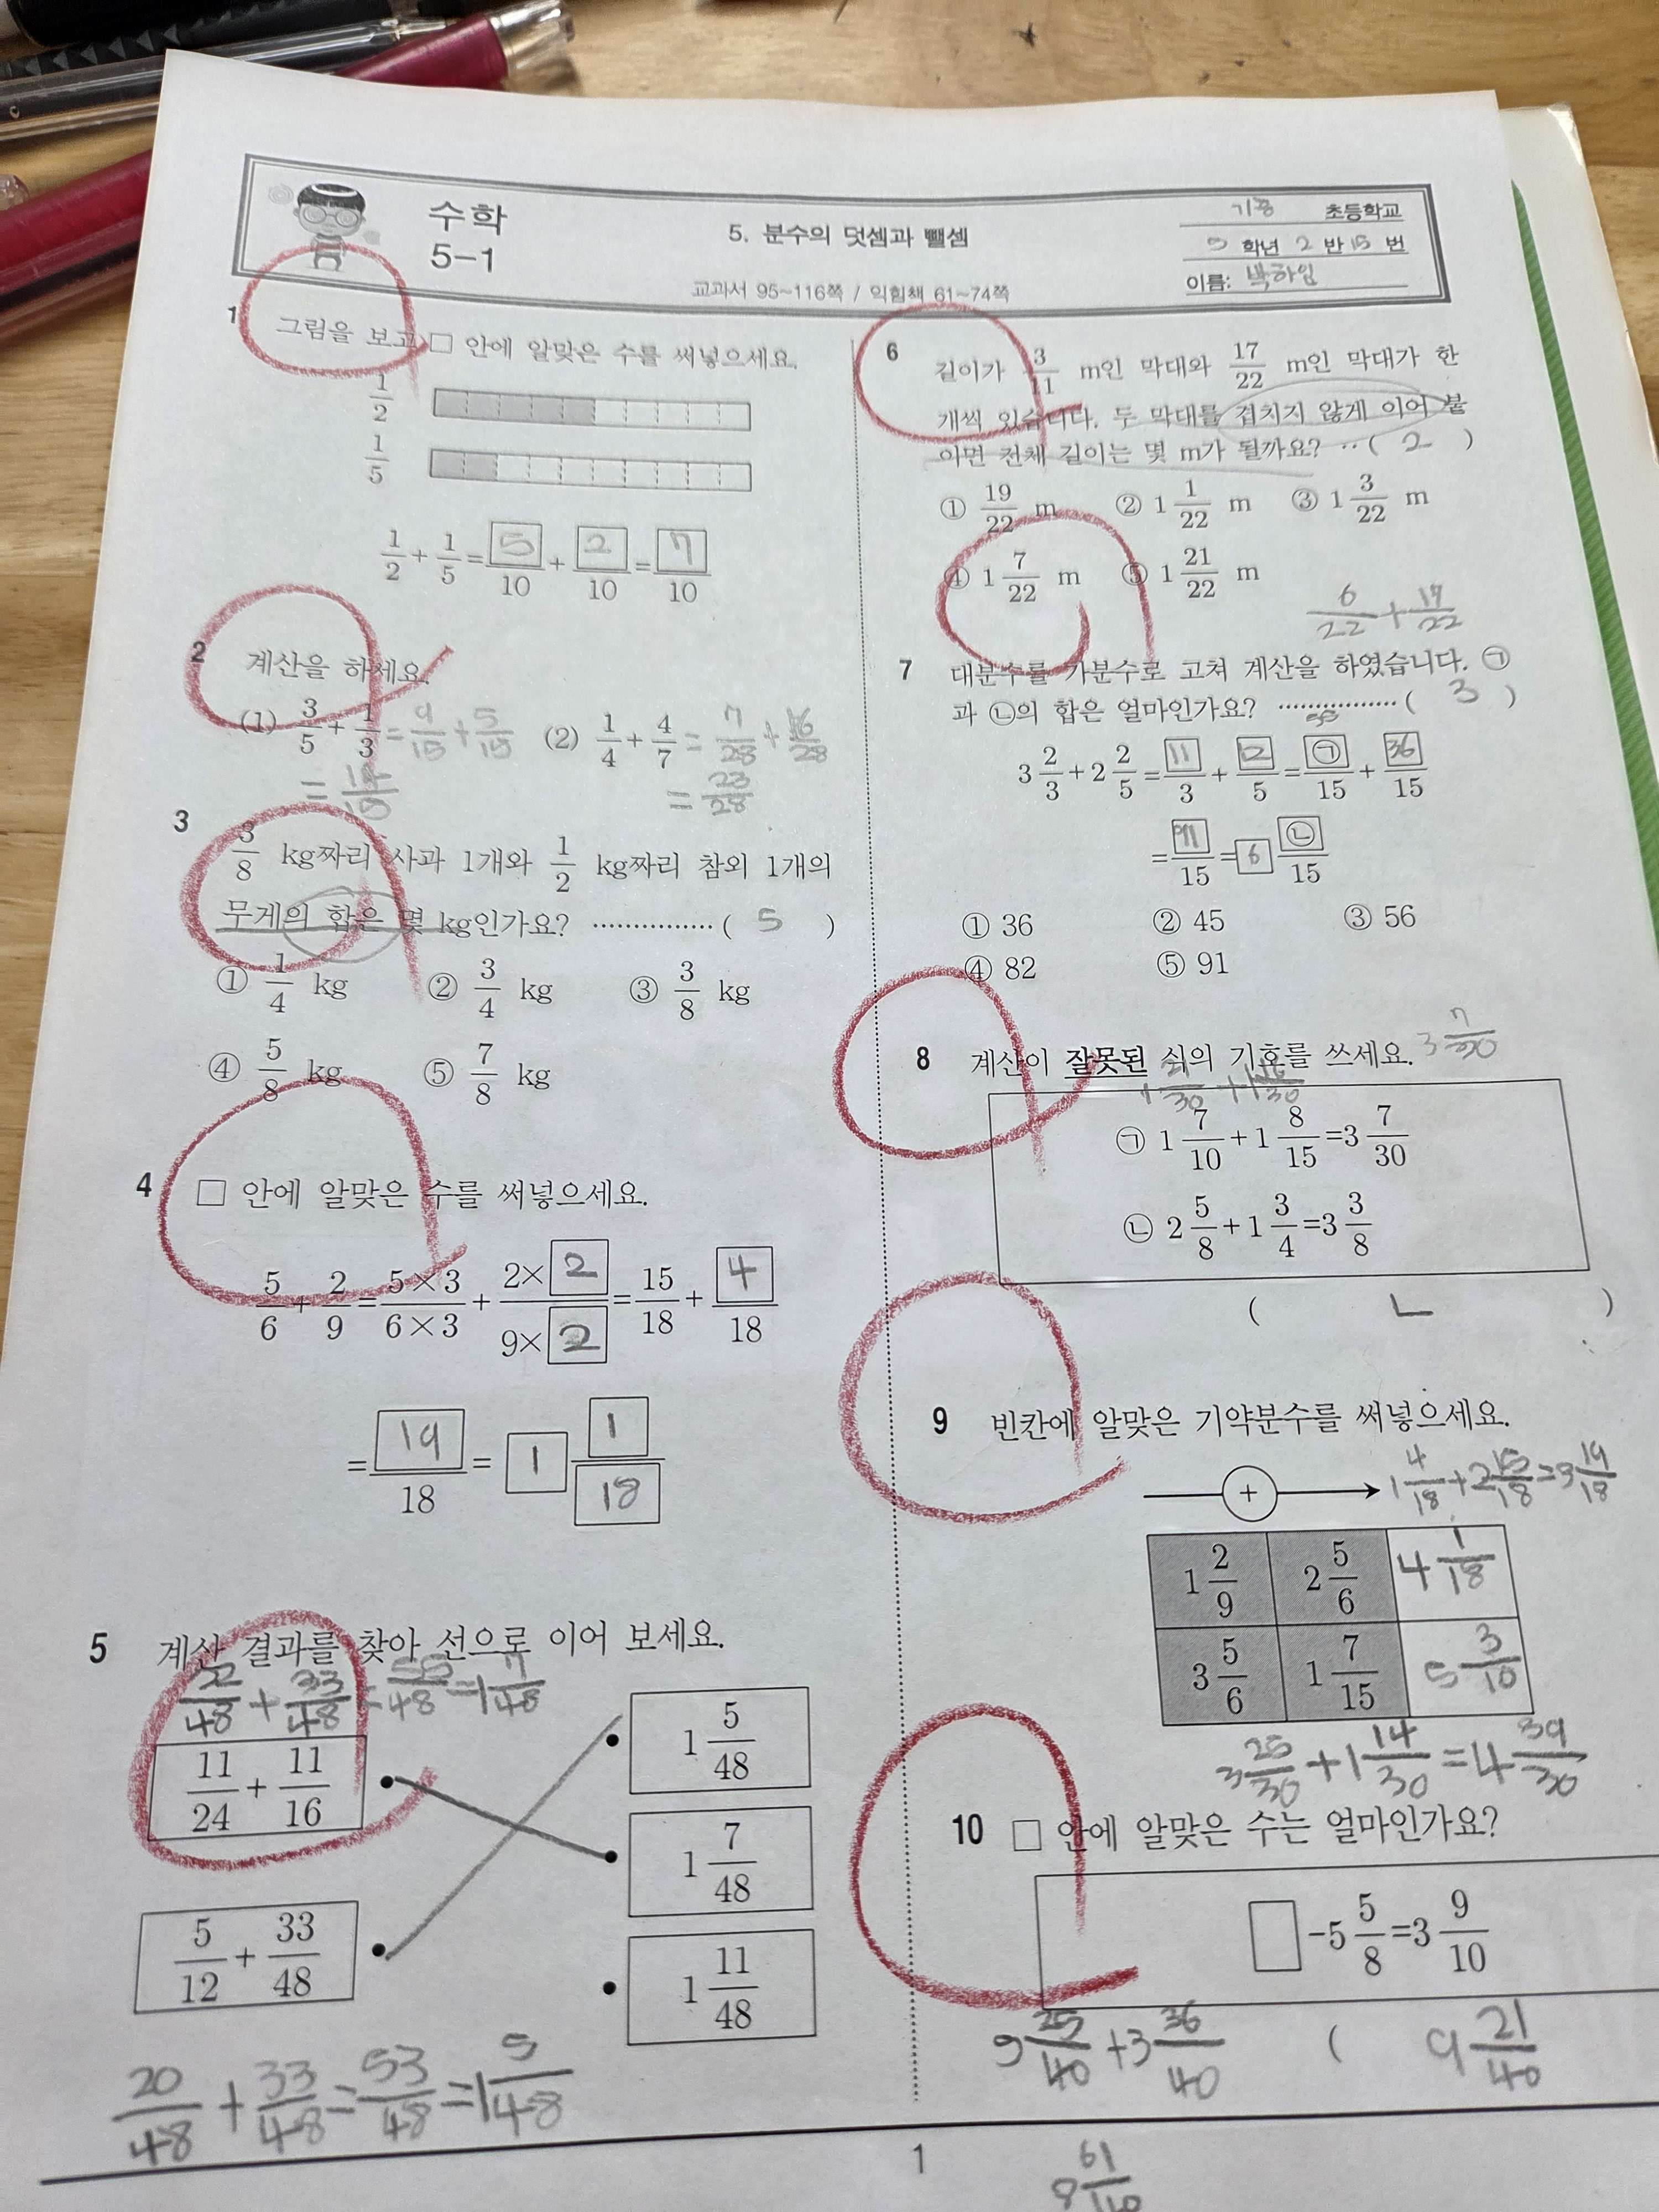 수학
5-1
5. 분수의 덧셈과 뺄셈
교과서 95~116쪽 / 익힘책 61~74쪽
초등학교
5 학년 2 반 15 번
이름: 박하임
1 그림을 보고 □ 안에 알맞은 수를 써넣으세요.
1/2
1/5
1/2 + 1/5 = 5/10 + 2/10 = 7/10
2 계산을 하세요.
(1) 3/5 + 1/3 = 9/15 + 5/15 (2) 1/4 + 4/7 = 7/28 + 16/28
= 14/15 = 23/28
3 3/8 kg짜리 사과 1개와 1/2 kg짜리 참외 1개의
무게의 합은 몇 kg인가요? ··············· ( 5 )
① 1/4 kg ② 3/4 kg ③ 3/8 kg
④ 5/8 kg ⑤ 7/8 kg
4 □ 안에 알맞은 수를 써넣으세요.
5/6 + 2/9 = 5×3/6×3 + 2×2/9×2 = 15/18 + 4/18
= 19/18 = 1 1/18
5 계산 결과를 찾아 선으로 이어 보세요.
22/48 + 33/48 = 55/48 = 1 7/48
11/24 + 11/16
1 5/48
1 7/48
5/12 + 33/48
1 11/48
20/48 + 33/48 = 53/48 = 1 5/48
6 길이가 3/11 m인 막대와 17/22 m인 막대가 한
개씩 있습니다. 두 막대를 겹치지 않게 이어 붙
이면 전체 길이는 몇 m가 될까요? ··( 2 )
① 19/22 m ② 1 1/22 m ③ 1 3/22 m
④ 1 7/22 m ⑤ 1 21/22 m
6/22 + 17/22
7 대분수를 가분수로 고쳐 계산을 하였습니다. ㉠
과 ㉡의 합은 얼마인가요? ················· ( 3 )
55
3 2/3 + 2 2/5 = 11/3 + 12/5 = ㉠/15 + 36/15
= 91/15 = 6 ㉡/15
① 36 ② 45 ③ 56
④ 82 ⑤ 91
8 계산이 잘못된 식의 기호를 쓰세요. 3 7/30
1 21/30 + 1 16/30
㉠ 1 7/10 + 1 8/15 = 3 7/30
㉡ 2 5/8 + 1 3/4 = 3 3/8
( ㄴ )
9 빈칸에 알맞은 기약분수를 써넣으세요.
+ 1 4/18 + 2 15/18 = 3 19/18
1 2/9 2 5/6 4 1/18
3 5/6 1 7/15 5 3/10
3 25/30 + 1 14/30 = 4 39/30
10 □ 안에 알맞은 수는 얼마인가요?
□ - 5 5/8 = 3 9/10
5 25/40 + 3 36/40 ( 9 21/40
8 61/40
1